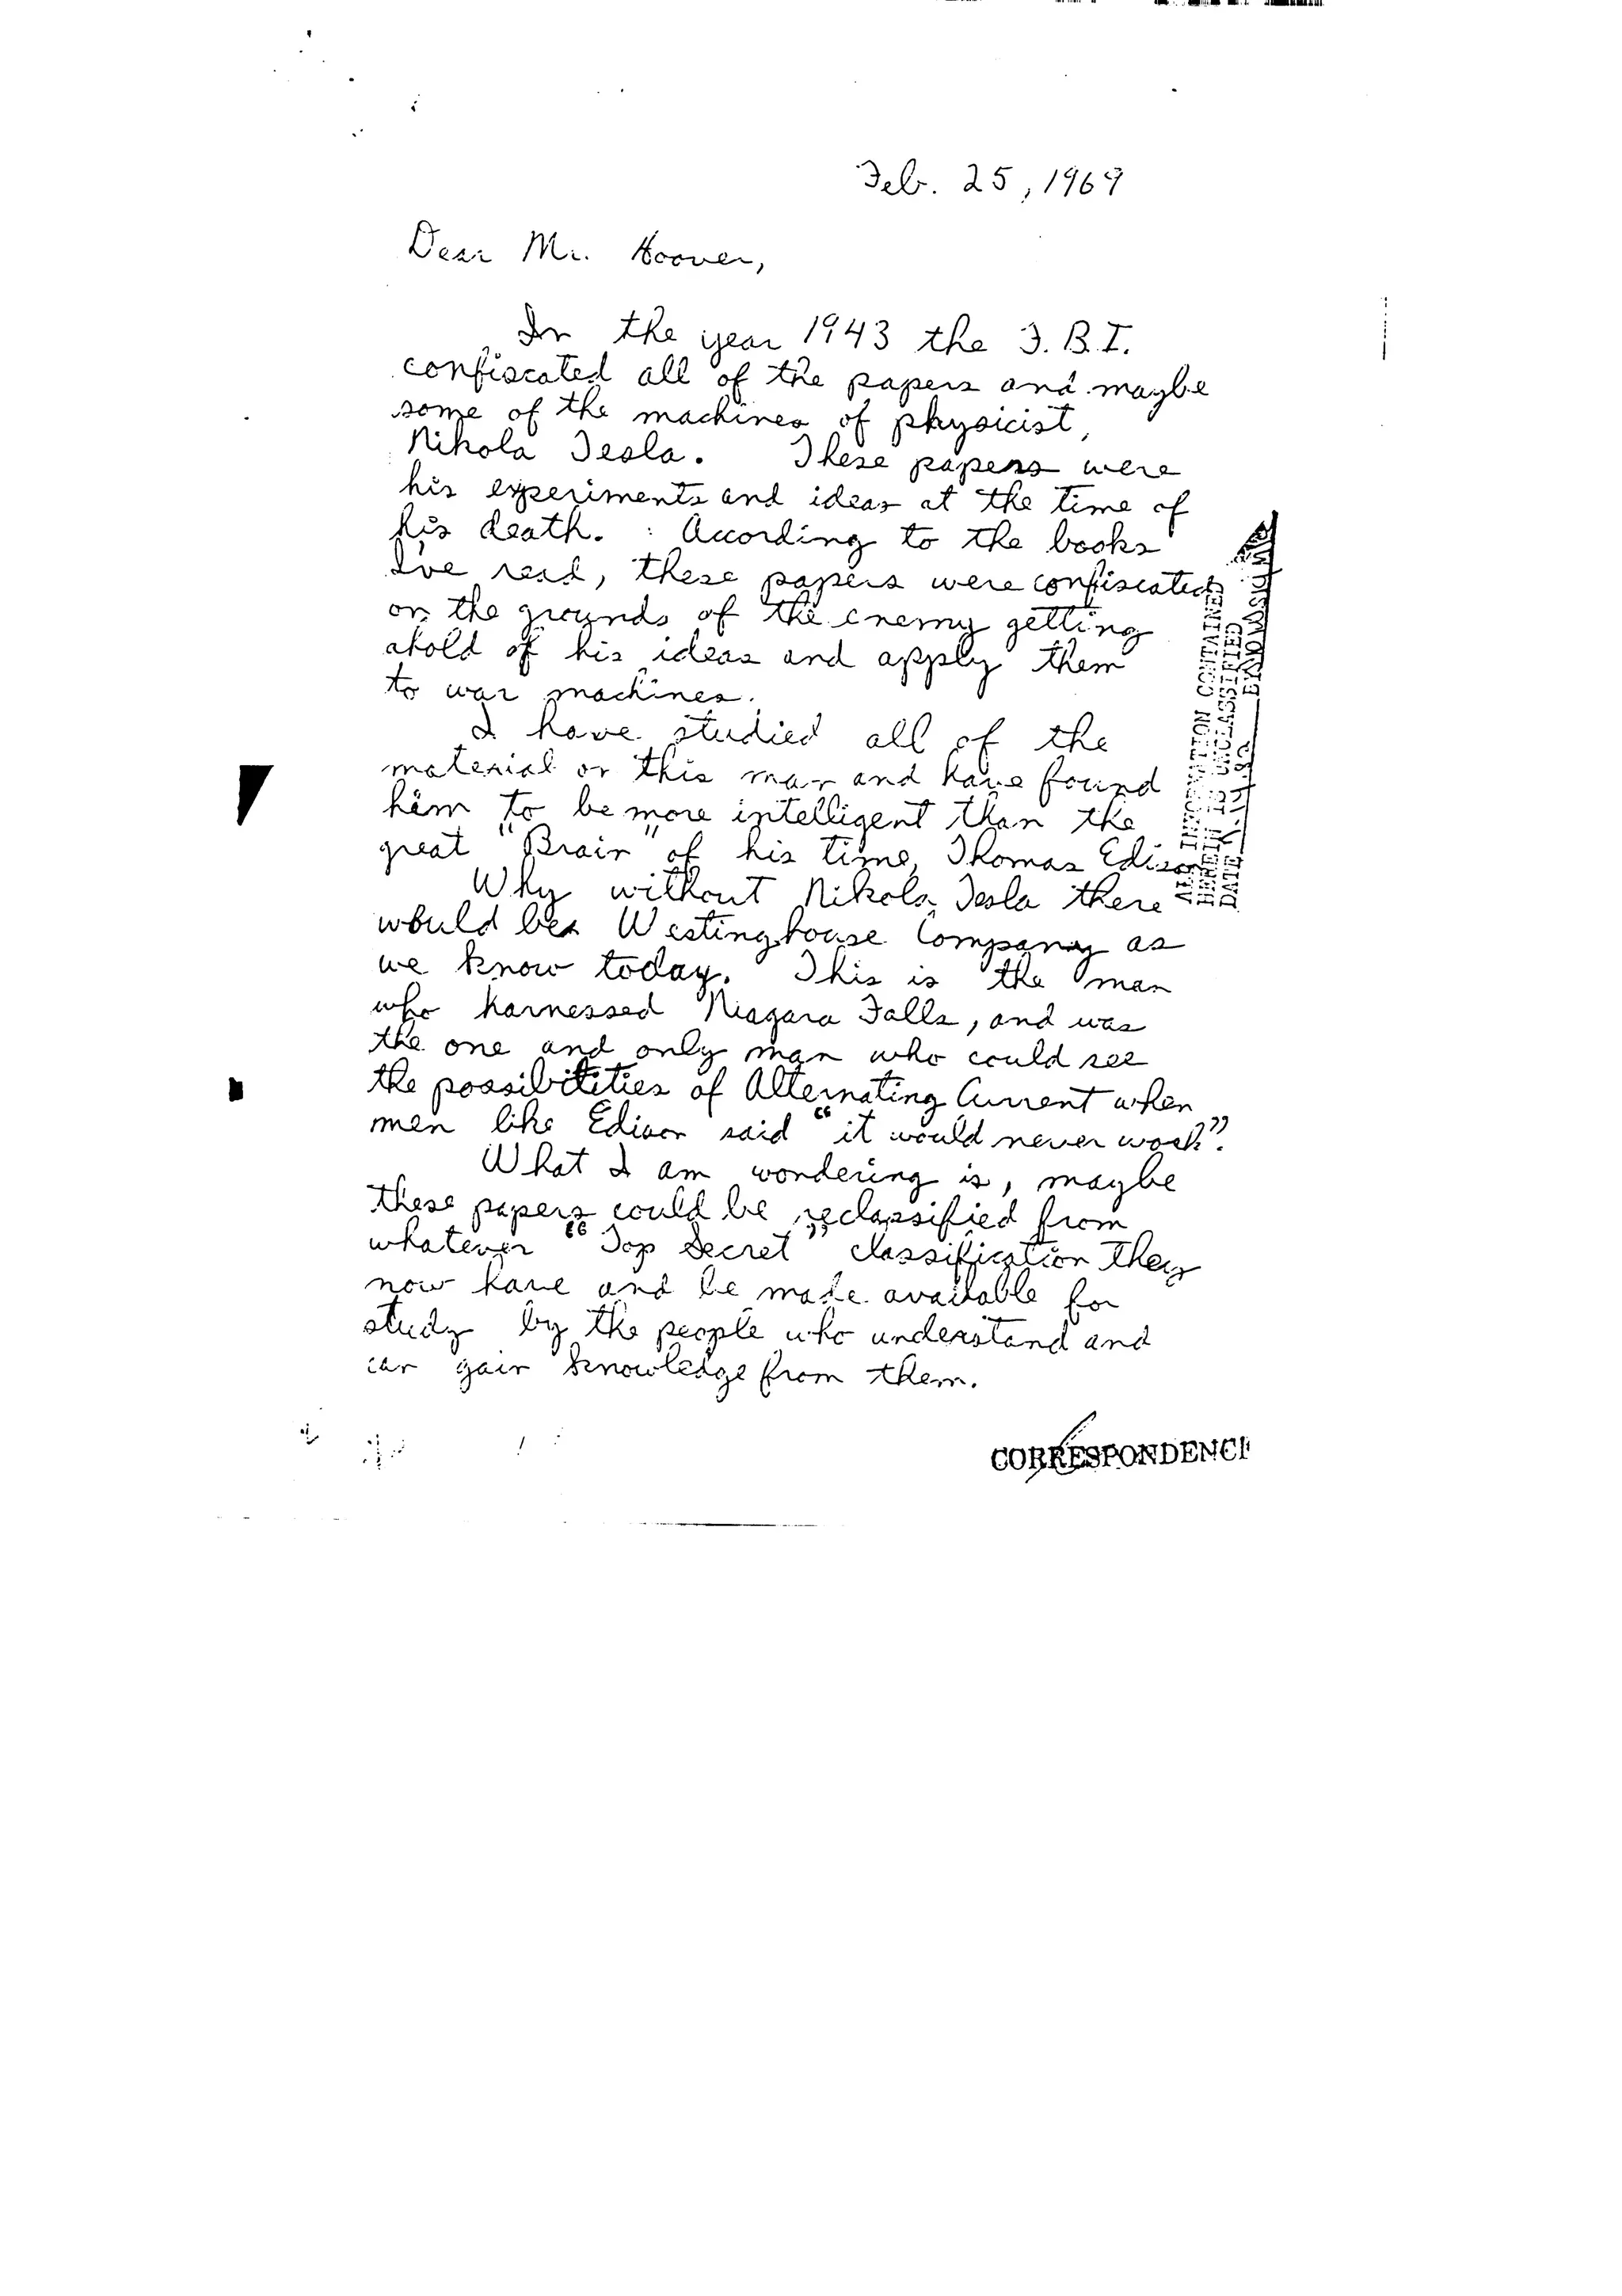 Feb. 25, 1969
Dear Mr. Hoover,
In the year 1943 the F.B.I.
confiscated all of the papers and maybe
some of the machines of physicist,
Nikola Tesla. These papers were
his experiments and ideas at the time of
his death. According to the books
I've read, these papers were confiscated
on the grounds of the enemy getting
ahold of his ideas and apply them
to war machines.
I have studied all of the
material on this man and have found
him to be more intelligent than the
great "Brain" of his time, Thomas Edison
Why without Nikola Tesla there
would be Westinghouse Company as
we know today. This is the man
who harnessed Niagara Falls, and was
the one and only man who could see
the possibilities of Alternating Current when
men like Edison said "it would never work".
What I am wondering is, maybe
these papers could be reclassified from
whatever "Top Secret" classification they
now have and be made available for
study by the people who understand and
can gain knowledge from them.
ALL INFORMATION CONTAINED
HEREIN IS UNCLASSIFIED
DATE
CORRESPONDENCE